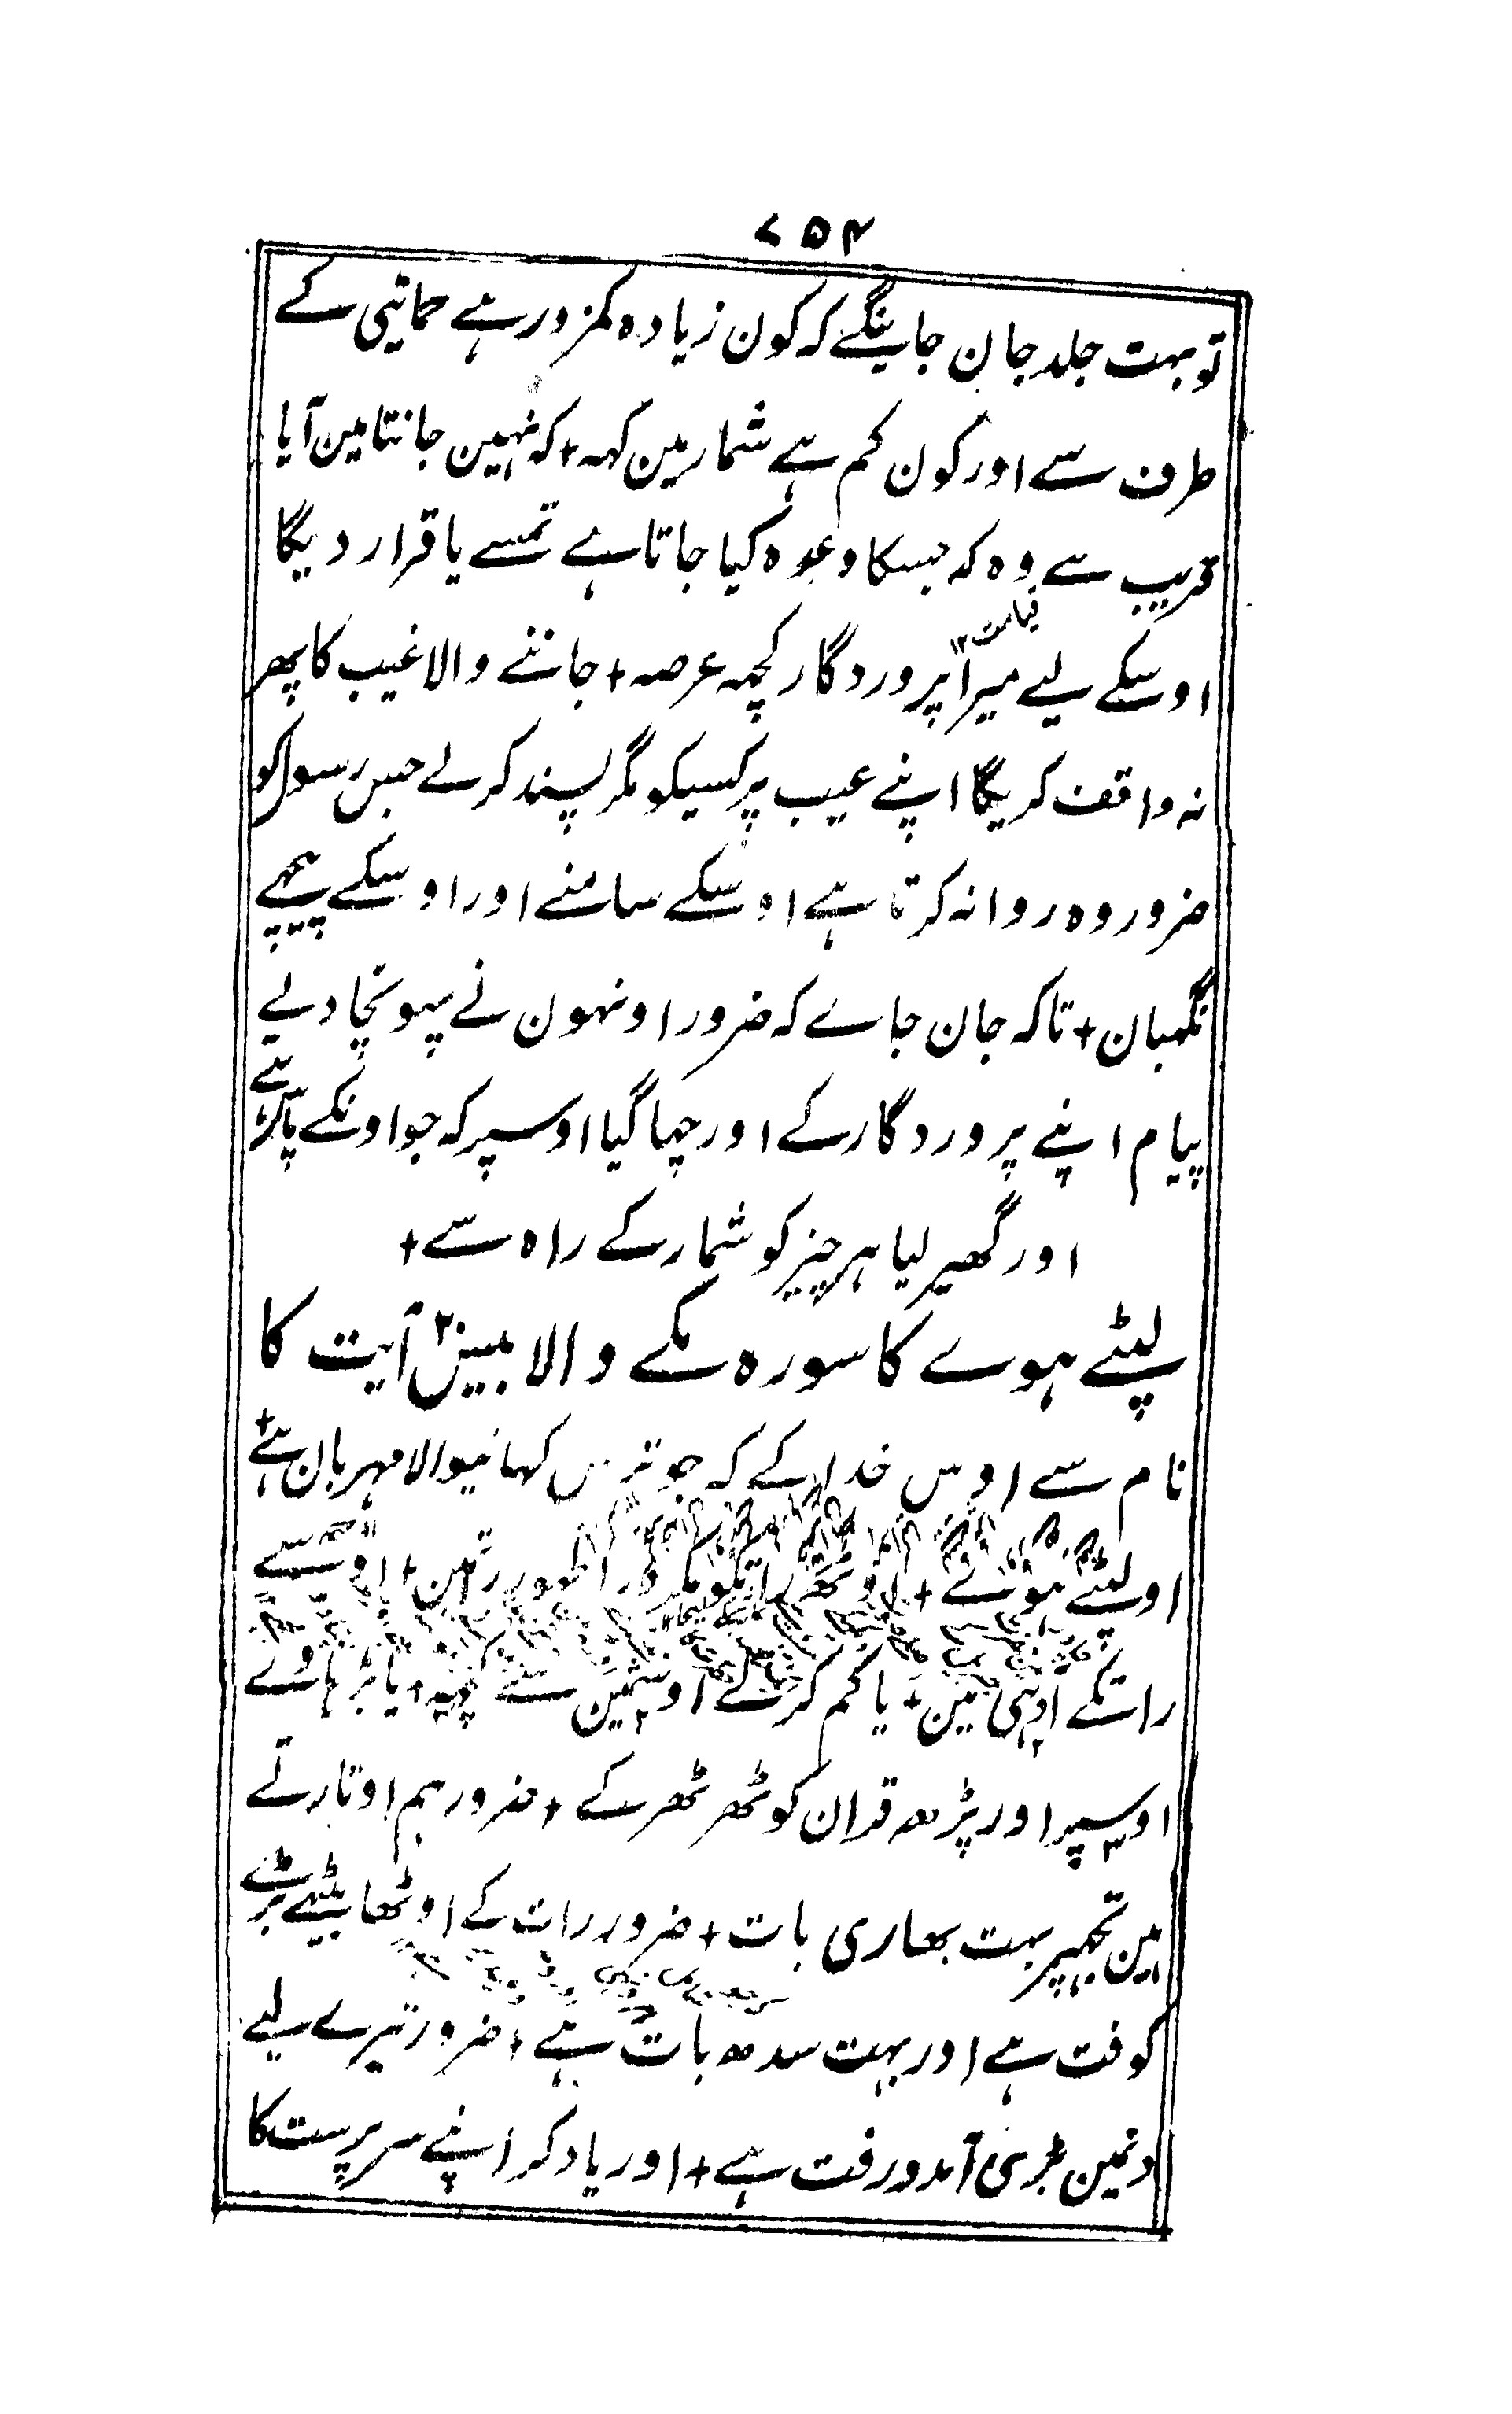 ۷۵۴
تو بہت جلد جان جاینگے کہ کون زیادہ کمزور ہے حمایتی کے
طرف سے اور کون کم ہے شمار مین کہہ + کہ نہین جانتا مین آیا
قریب ہے وہ کہ جسکا وعدہ کیا جاتا ہے تمسے یا قرار دیگا
قیامت ۱۲
اوسکے لیے میرا پروردگار کچہہ عرصہ + جاننے والا غیب کا پھر
نہ واقف کریگا اپنے غیب پر کسیکو مگر پسند کرلے جس رسول کو
ضرور وہ روانہ کرتا ہے اوسکے سامنے اور اوسکے پیچھے
نگہبان + تاکہ جان جاے کہ ضرور اونہون نے پہونچا دیے
پیام اپنے پروردگار کے اور چہا گیا اوسپر کہ جو اونکے پاس ہے
اور گھیر لیا ہر چیز کو شمار کے راہ سے +
لپٹے ہوے کا سورہ مکے والا بیس۲۰ آیت کا
نام سے اوس خدا کے کہ جو ترس کہانیوالا مہربان ہے +
او لپٹے ہوئے + اوٹھ راتکو مگر ذرا تھوڑے مین + اوسمے
راتکے ادہی مین + یا کم کر لے اوسمین سے کچہہ + یا بڑہا دے
اوسپر اور پڑھ قران کو ٹھر ٹھر کے + ضرور ہم اوتارتے
ہین تجھپر بہت بھاری بات + ضرور رات کے اوٹھا بیٹھے بڑے
کوفت ہے اور بہت سدھ بات ہے + ضرور تیرے لیے
دنمین بڑی آمدورفت ہے + اور یاد کر اپنے سرپرست کا